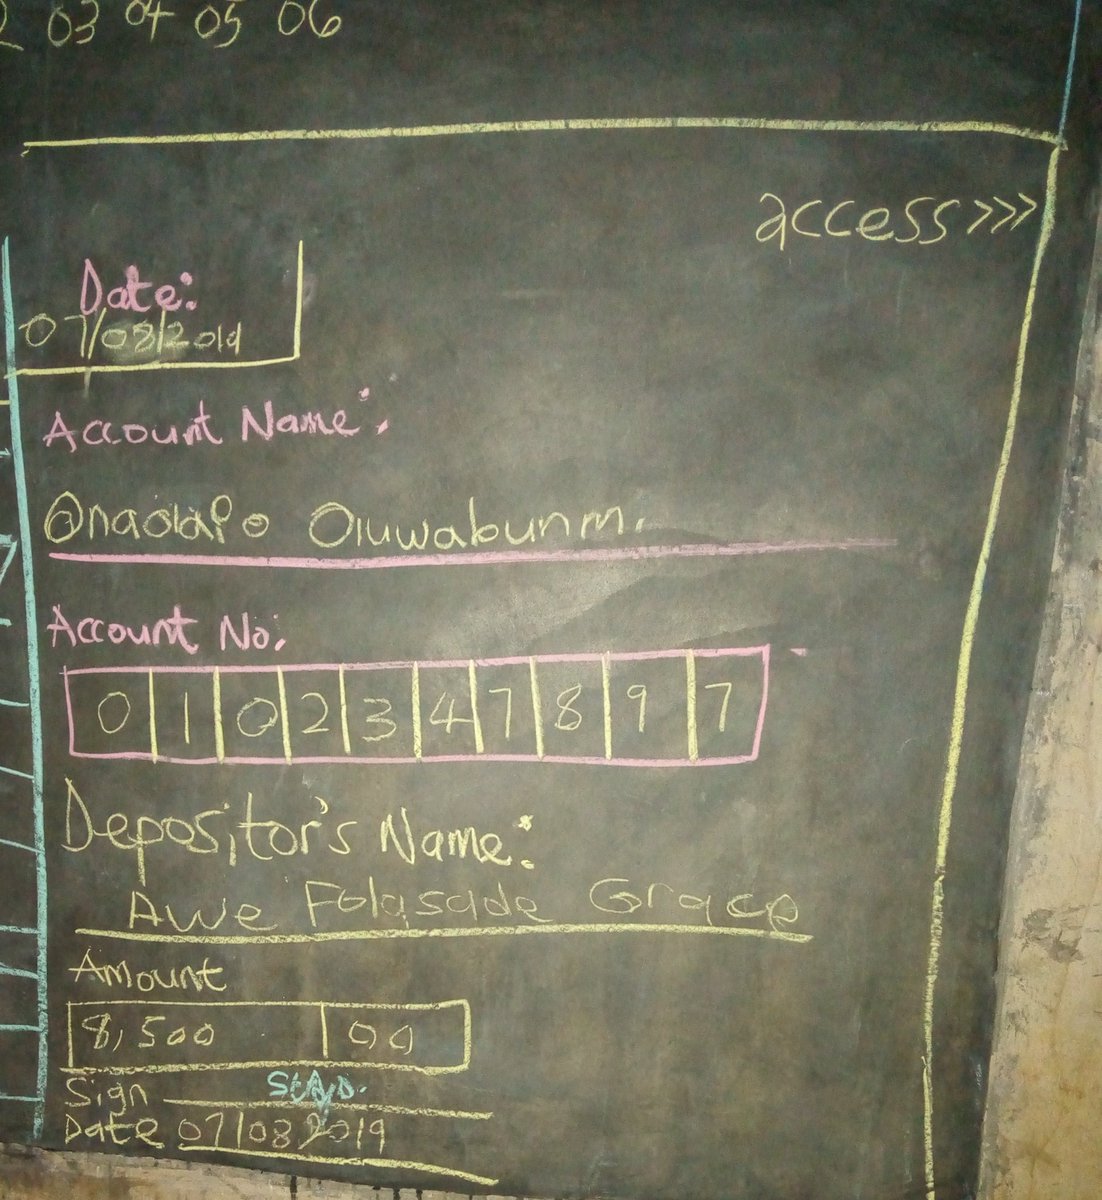 03 04 05 06
access >>>
Date:
07/08/2019
Account Name:
Onaolapo Oluwabunm.
Account No:
0 1 0 2 3 4 7 8 9 7
Depositor's Name:
Awe Folasade Grace
Amount
8,500 00
Sign
Date 07/08/2019